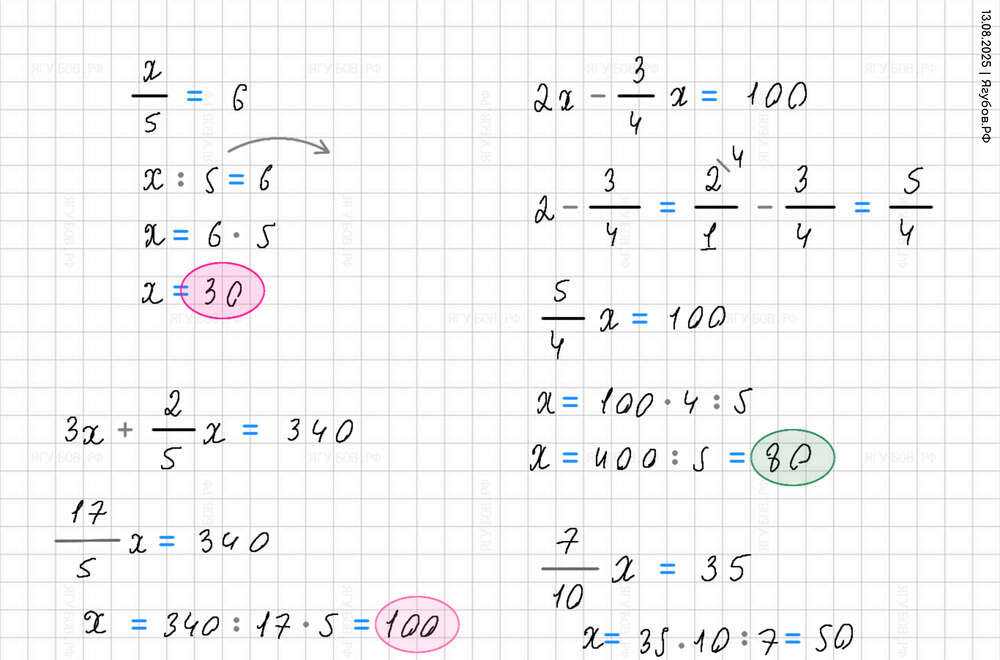 13.08.2025 | Ягубов.РФ
x/5 = 6
x : 5 = 6
x = 6 · 5
x = 30
3x + 2/5 x = 340
17/5 x = 340
x = 340 : 17 · 5 = 100
2x - 3/4 x = 100
2 - 3/4 = 2\4/1 - 3/4 = 5/4
5/4 x = 100
x = 100 · 4 : 5
x = 400 : 5 = 80
7/10 x = 35
x = 35 · 10 : 7 = 50